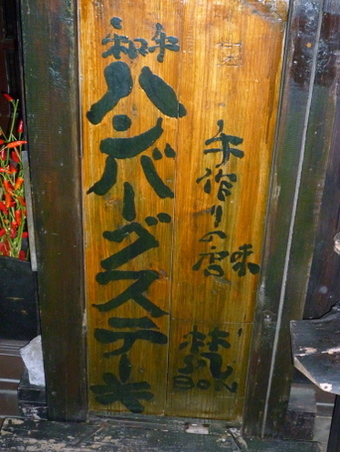 和牛
ハンバーグステーキ
手作りの味
梵
BON